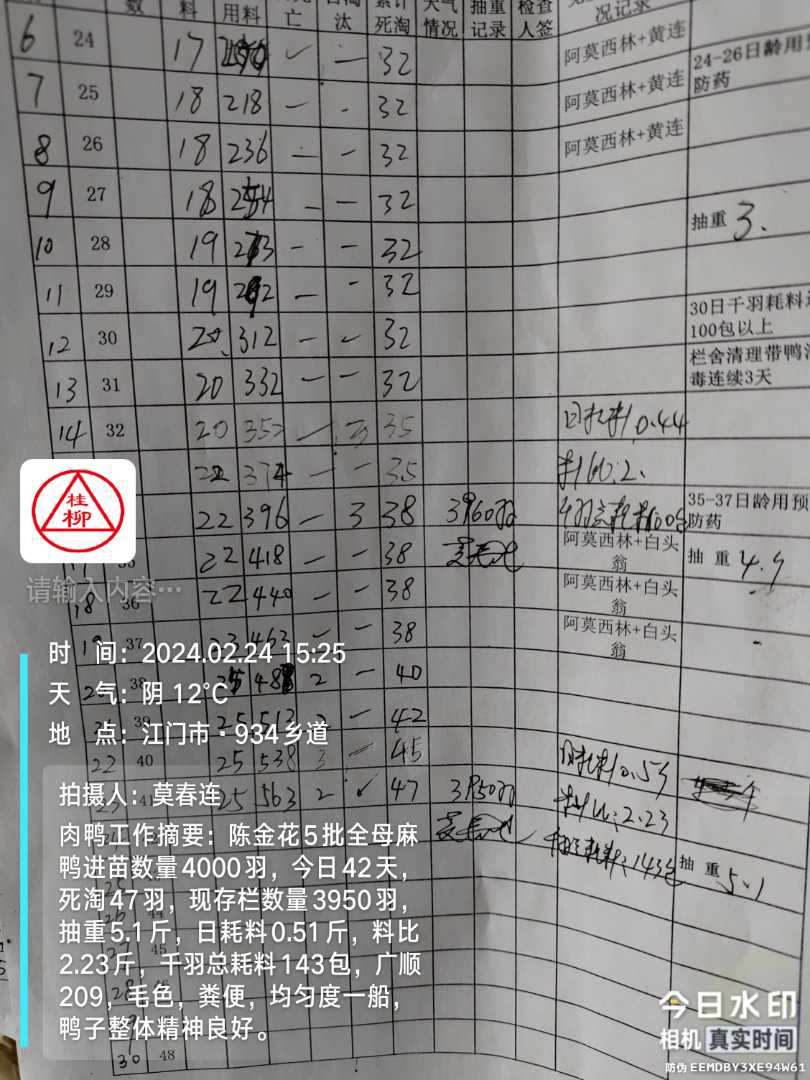 数 料 用料 亡 汰 死淘 情况 记录 人签 况记录
6 24 17 — 32 阿莫西林+黄连
24-26日龄用
防药
7 25 18 218 — - 32 阿莫西林+黄连
8 26 18 236 — — 32 阿莫西林+黄连
9 27 18 254 — — 32
抽重 3.
10 28 19 273 — — 32
11 29 19 292 — — 32
30日千羽耗料
100包以上
12 30 20 312 — — 32
栏舍清理带鸭
毒连续3天
13 31 20 332 — — 32
14 32 20 352 — 3 35 日耗料0.44
22 374 — — 35 料比:2.
22 396 — 3 38 3960羽
35-37日龄用预
防药
22 418 — — 38 阿莫西林+白头
翁
抽重 4.9
18 36 22 440 — — 38 阿莫西林+白头
翁
19 37 23 463 — — 38 阿莫西林+白头
翁
38 25 488 2 — 40
39 25 513 2 — 42
22 40 25 538 3 — 45 日耗料0.53
41 25 563 2 47 3950羽 料比:2.23
耗料:143包
抽重 5.1
44
45
30 48
桂
柳
请输入内容…
时 间：2024.02.24 15:25
天 气：阴 12℃
地 点：江门市·934乡道
拍摄人：莫春连
肉鸭工作摘要：陈金花5批全母麻
鸭进苗数量4000羽，今日42天，
死淘47羽，现存栏数量3950羽，
抽重5.1斤，日耗料0.51斤，料比
2.23斤，千羽总耗料143包，广顺
209，毛色，粪便，均匀度一船，
鸭子整体精神良好。
今日水印
相机 真实时间
防伪 EEMDBY3XE94W61